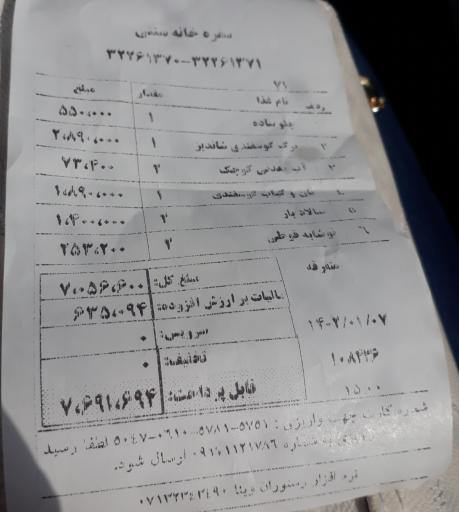 سفره خانه سنتی
۳۲۲۶۱۳۷۰-۳۲۲۶۱۳۷۱
۷۱
ردیف نام غذا مقدار مبلغ
چلو ساده ۱ ۵۵۰,۰۰۰
۲ برگ گوسفندی شاندیز ۱ ۲,۸۹۰,۰۰۰
۳ آب معدنی کوچک ۲ ۷۳,۴۰۰
۴ نان و کباب گوسفندی ۱ ۱,۸۹۰,۰۰۰
۵ سالاد بار ۲ ۱,۴۰۰,۰۰۰
۶ نوشابه قوطی ۲ ۲۵۳,۲۰۰
مبلغ کل: ۷,۰۵۶,۶۰۰
مالیات بر ارزش افزوده: ۶۳۵,۰۹۴
سرویس: ۰
تخفیف: ۰
قابل پرداخت: ۷,۶۹۱,۶۹۴
متفرقه
۱۴۰۲/۰۱/۰۷
۱۰۸۴۳۶
۱۵:۰۰
شماره کارت جهت واریزی : ۵۷۵۱-۵۷۸۱-۰۶۱۰-۵۰۴۷ لطفا رسید
به شماره ۰۹۲۰۱۱۲۱۷۸۶ ارسال شود.
نرم افزار رستوران وینا ۰۷۱۳۲۳۴۳۴۹۰